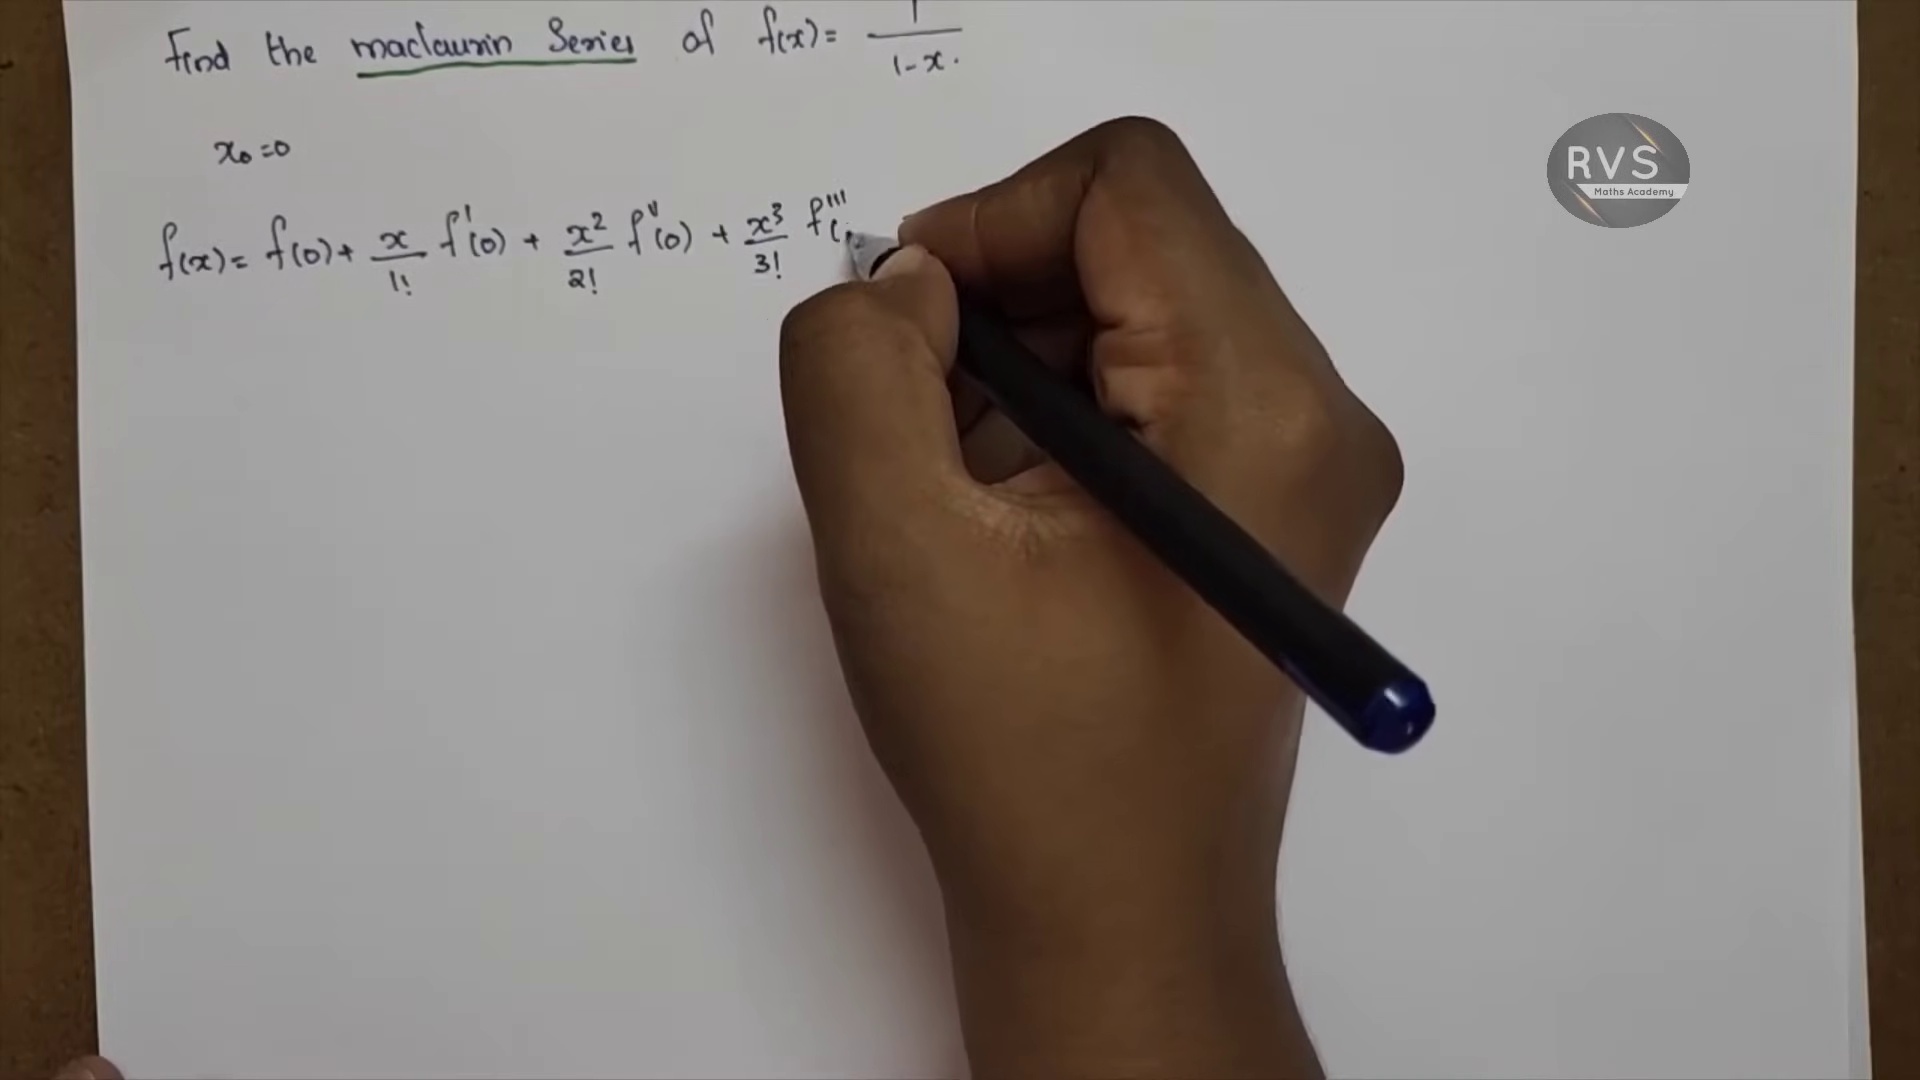 Find the maclaurin Series of f(x) = 1/1-x.
x₀ = 0
f(x) = f(0) + x/1! f'(0) + x²/2! f''(0) + x³/3! f'''(
RVS
Maths Academy